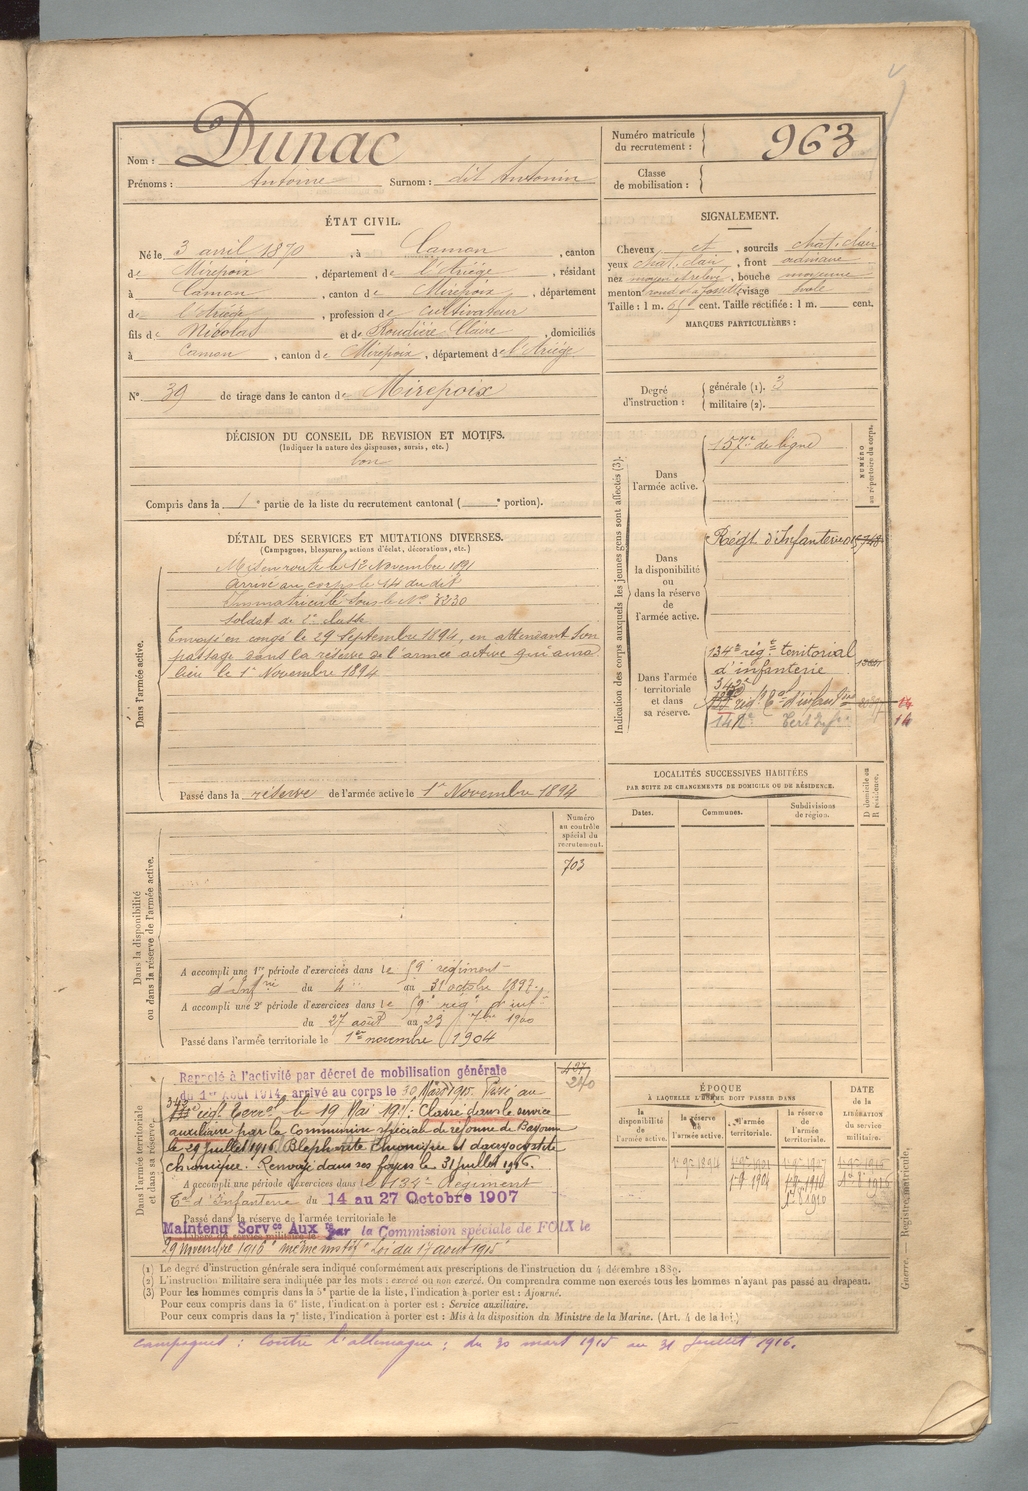 Nom : Dunac
Prénoms : Antoine Surnom : dit Antonin
Numéro matricule du recrutement : 963
Classe de mobilisation :
ÉTAT CIVIL.
Né le 3 avril 1870, à Camon, canton
de Mirepoix, département de l'Ariège, résidant
à Camon, canton de Mirepoix, département
de l'Ariège, profession de cultivateur
fils de Nicolas et de Roudière Claire, domiciliés
à Camon, canton de Mirepoix, département de l'Ariège
N° 39 de tirage dans le canton de Mirepoix
SIGNALEMENT.
Cheveux et, sourcils chat. clair
yeux chat. clair, front ordinaire
nez moyen, bouche moyenne
menton rond et à fossette visage ovale
Taille : 1 m. 65 cent. Taille rectifiée : 1 m. cent.
MARQUES PARTICULIÈRES :
Degré d'instruction : générale (1). 3
militaire (2).
DÉCISION DU CONSEIL DE REVISION ET MOTIFS.
(Indiquer la nature des dispenses, sursis, etc.)
bon
Compris dans la 1e partie de la liste du recrutement cantonal ( e portion).
DÉTAIL DES SERVICES ET MUTATIONS DIVERSES.
(Campagnes, blessures, actions d'éclat, décorations, etc.)
Dans l'armée active.
Mis en route le 12 Novembre 1891
Arrivé au corps le 14 du dit
Immatriculé sous le N° 3230
soldat de 2e classe
Envoyé en congé le 29 Septembre 1894, en attendant son
passage dans la réserve de l'armée active qui aura
lieu le 1er Novembre 1894
Passé dans la réserve de l'armée active le 1er Novembre 1894
Indication des corps auxquels les jeunes gens sont affectés (3).
NUMÉRO au répertoire du corps.
Dans l'armée active.
157e de ligne
Dans la disponibilité ou dans la réserve de l'armée active.
Régt d'Infanterie
Dans l'armée territoriale et dans sa réserve.
134e régt territorial
d'infanterie
342e
régt d'infanterie
14
Terr
14
LOCALITÉS SUCCESSIVES HABITÉES
PAR SUITE DE CHANGEMENTS DE DOMICILE OU DE RÉSIDENCE.
Dates. Communes. Subdivisions de région. D Domicile ou R résidence.
Dans la disponibilité ou dans la réserve de l'armée active.
Numéro au contrôle spécial du recrutement.
703
A accompli une 1re période d'exercices dans le 59e régiment
d'Infrie du 4 au 31 octobre 1897
A accompli une 2e période d'exercices dans le 59e régt d'inf
du 27 août au 23 7bre 1900
Passé dans l'armée territoriale le 1er novembre 1904
Dans l'armée territoriale et dans sa réserve.
497
240
Rappelé à l'activité par décret de mobilisation générale
du 1er Août 1914, arrivé au corps le 30 Mars 1915. Passé au
342 régt Terral le 19 Mai 191: Classé dans le service
auxiliaire par la Commission spéciale de réforme de Bayonne
le 29 Juillet 1916. Blépharite chronique et dacryocystite
chronique. Renvoyé dans ses foyers le 31 juillet 1916.
A accompli une période d'exercices dans le 134e Régiment
Tal d'Infanterie du 14 au 27 Octobre 1907
Passé dans la réserve de l'armée territoriale le
Libéré du service militaire le
Maintenu Servce Auxre par la Commission spéciale de FOIX le
29 novembre 1916 même motif Loi du 17 août 1915
ÉPOQUE
À LAQUELLE L'HOMME DOIT PASSER DANS
la disponibilité de l'armée active. la réserve de l'armée active. l'armée territoriale. la réserve de l'armée territoriale.
DATE DE LA LIBÉRATION du service militaire.
1er 9bre 1894
1er 9bre 1904
1er 8bre 1910
(1) Le degré d'instruction générale sera indiqué conformément aux prescriptions de l'instruction du 4 décembre 1889.
(2) L'instruction militaire sera indiquée par les mots : exercé ou non exercé. On comprendra comme non exercés tous les hommes n'ayant pas passé au drapeau.
(3) Pour les hommes compris dans la 5e partie de la liste, l'indication à porter est : Ajourné.
Pour ceux compris dans la 6e liste, l'indication à porter est : Service auxiliaire.
Pour ceux compris dans la 7e liste, l'indication à porter est : Mis à la disposition du Ministre de la Marine. (Art. 4 de la loi.)
Guerre. Registre matricule.
campagnes : Contre l'allemagne : du 30 mars 1915 au 31 Juillet 1916.